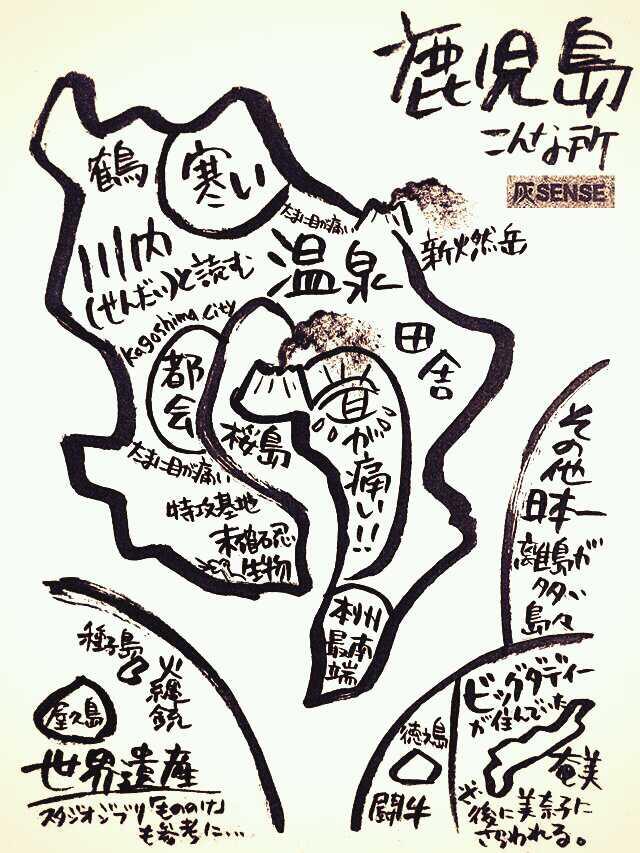 鹿児島
こんな所
灰SENSE
鶴
寒い
たまに目が痛い
新燃岳
川内
(せんだい)と読む
温泉
Kagoshima City
田舎
都会
桜島
目が痛い!!
たまに目が痛い
特攻基地
生物
本州
最南
端
その他
日本一
離島が
多い
島々
種子島
火縄銃
屋久島
世界遺産
スタジオジブリ「もののけ」
も参考に…
徳之島
闘牛
ビッグダディー
が住んでいた
奄美
※後に美奈子に
さらわれる。